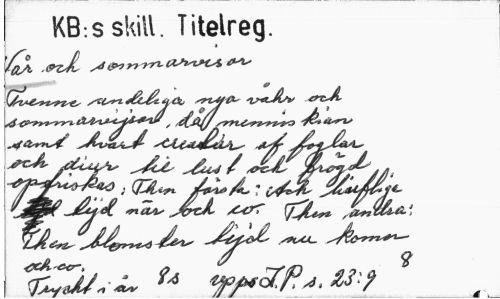 KB:s skill. Titelreg.
Vår och sommarvisor
Tvenne andeliga nya våhr och
sommarvijsor, då menniskian
samt hvart creatur af foglar
och diur til lust och frögd
opwäckas; Then första: Ack liuflige
tijd när och co. Then andra:
Then blomster tijd nu komer
och co. 8
Tryckt i år 8s Upps I.P. s. 23:9